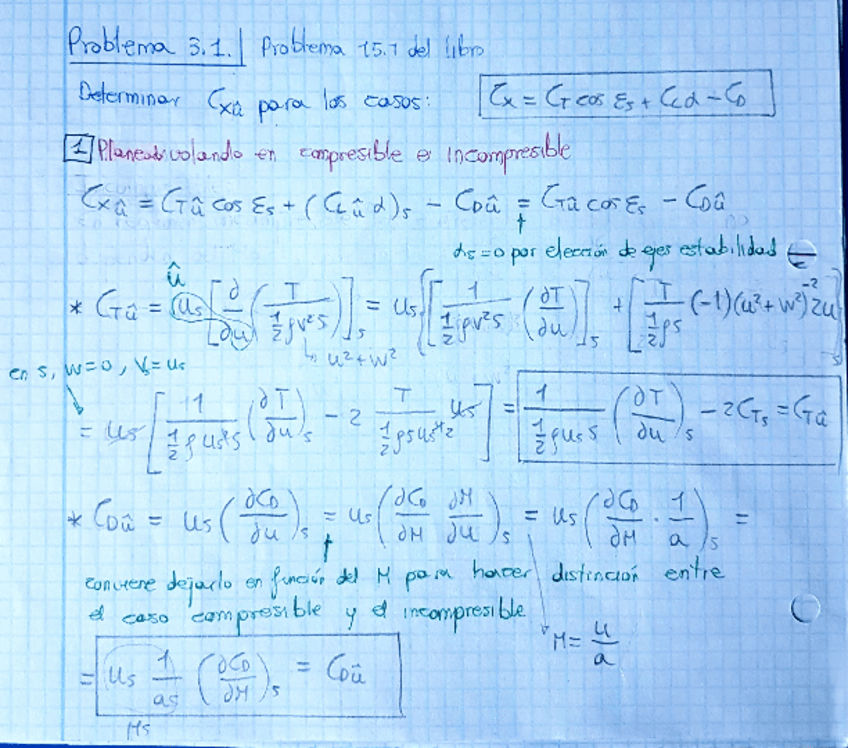 Problema 3.1. | Problema 15.7 del libro
Determinar Cxû para los casos: Cx = CT cos εs + CLα − CD
1 Planeador volando en compresible e incompresible
Cxû = CTû cos εs + (CLû α)s − CDû = CTû cos εs − CDû
αs = 0 por elección de ejes estabilidad
û
* CTû = us [∂/∂u (T / ½ρV²S)]s = us {[1 / ½ρV²S (∂T/∂u)]s + [T / ½ρS (−1)(u²+w²)⁻² 2u]s}
u² + w²
en s, w=0, Vs=us
= us [1 / ½ρus²S (∂T/∂u)s − 2 T / ½ρSus⁴ us] = 1 / ½ρusS (∂T/∂u)s − 2CTs = CTû
* CDû = us (∂CD/∂u)s = us (∂CD/∂M ∂M/∂u)s = us (∂CD/∂M · 1/a)s =
conviene dejarlo en función del M para hacer distinción entre
el caso compresible y el incompresible
M = u/a
= us 1/as (∂CD/∂M)s = CDû
Ms